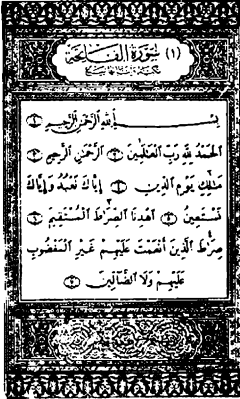 (١) سُورَةُ الفَاتِحَةِ
بِسْمِ اللَّهِ الرَّحْمَٰنِ الرَّحِيمِ ۝
الْحَمْدُ لِلَّهِ رَبِّ الْعَالَمِينَ ۝ الرَّحْمَٰنِ الرَّحِيمِ ۝
مَالِكِ يَوْمِ الدِّينِ ۝ إِيَّاكَ نَعْبُدُ وَإِيَّاكَ
نَسْتَعِينُ ۝ اهْدِنَا الصِّرَاطَ الْمُسْتَقِيمَ ۝
صِرَاطَ الَّذِينَ أَنْعَمْتَ عَلَيْهِمْ غَيْرِ الْمَغْضُوبِ
عَلَيْهِمْ وَلَا الضَّالِّينَ ۝